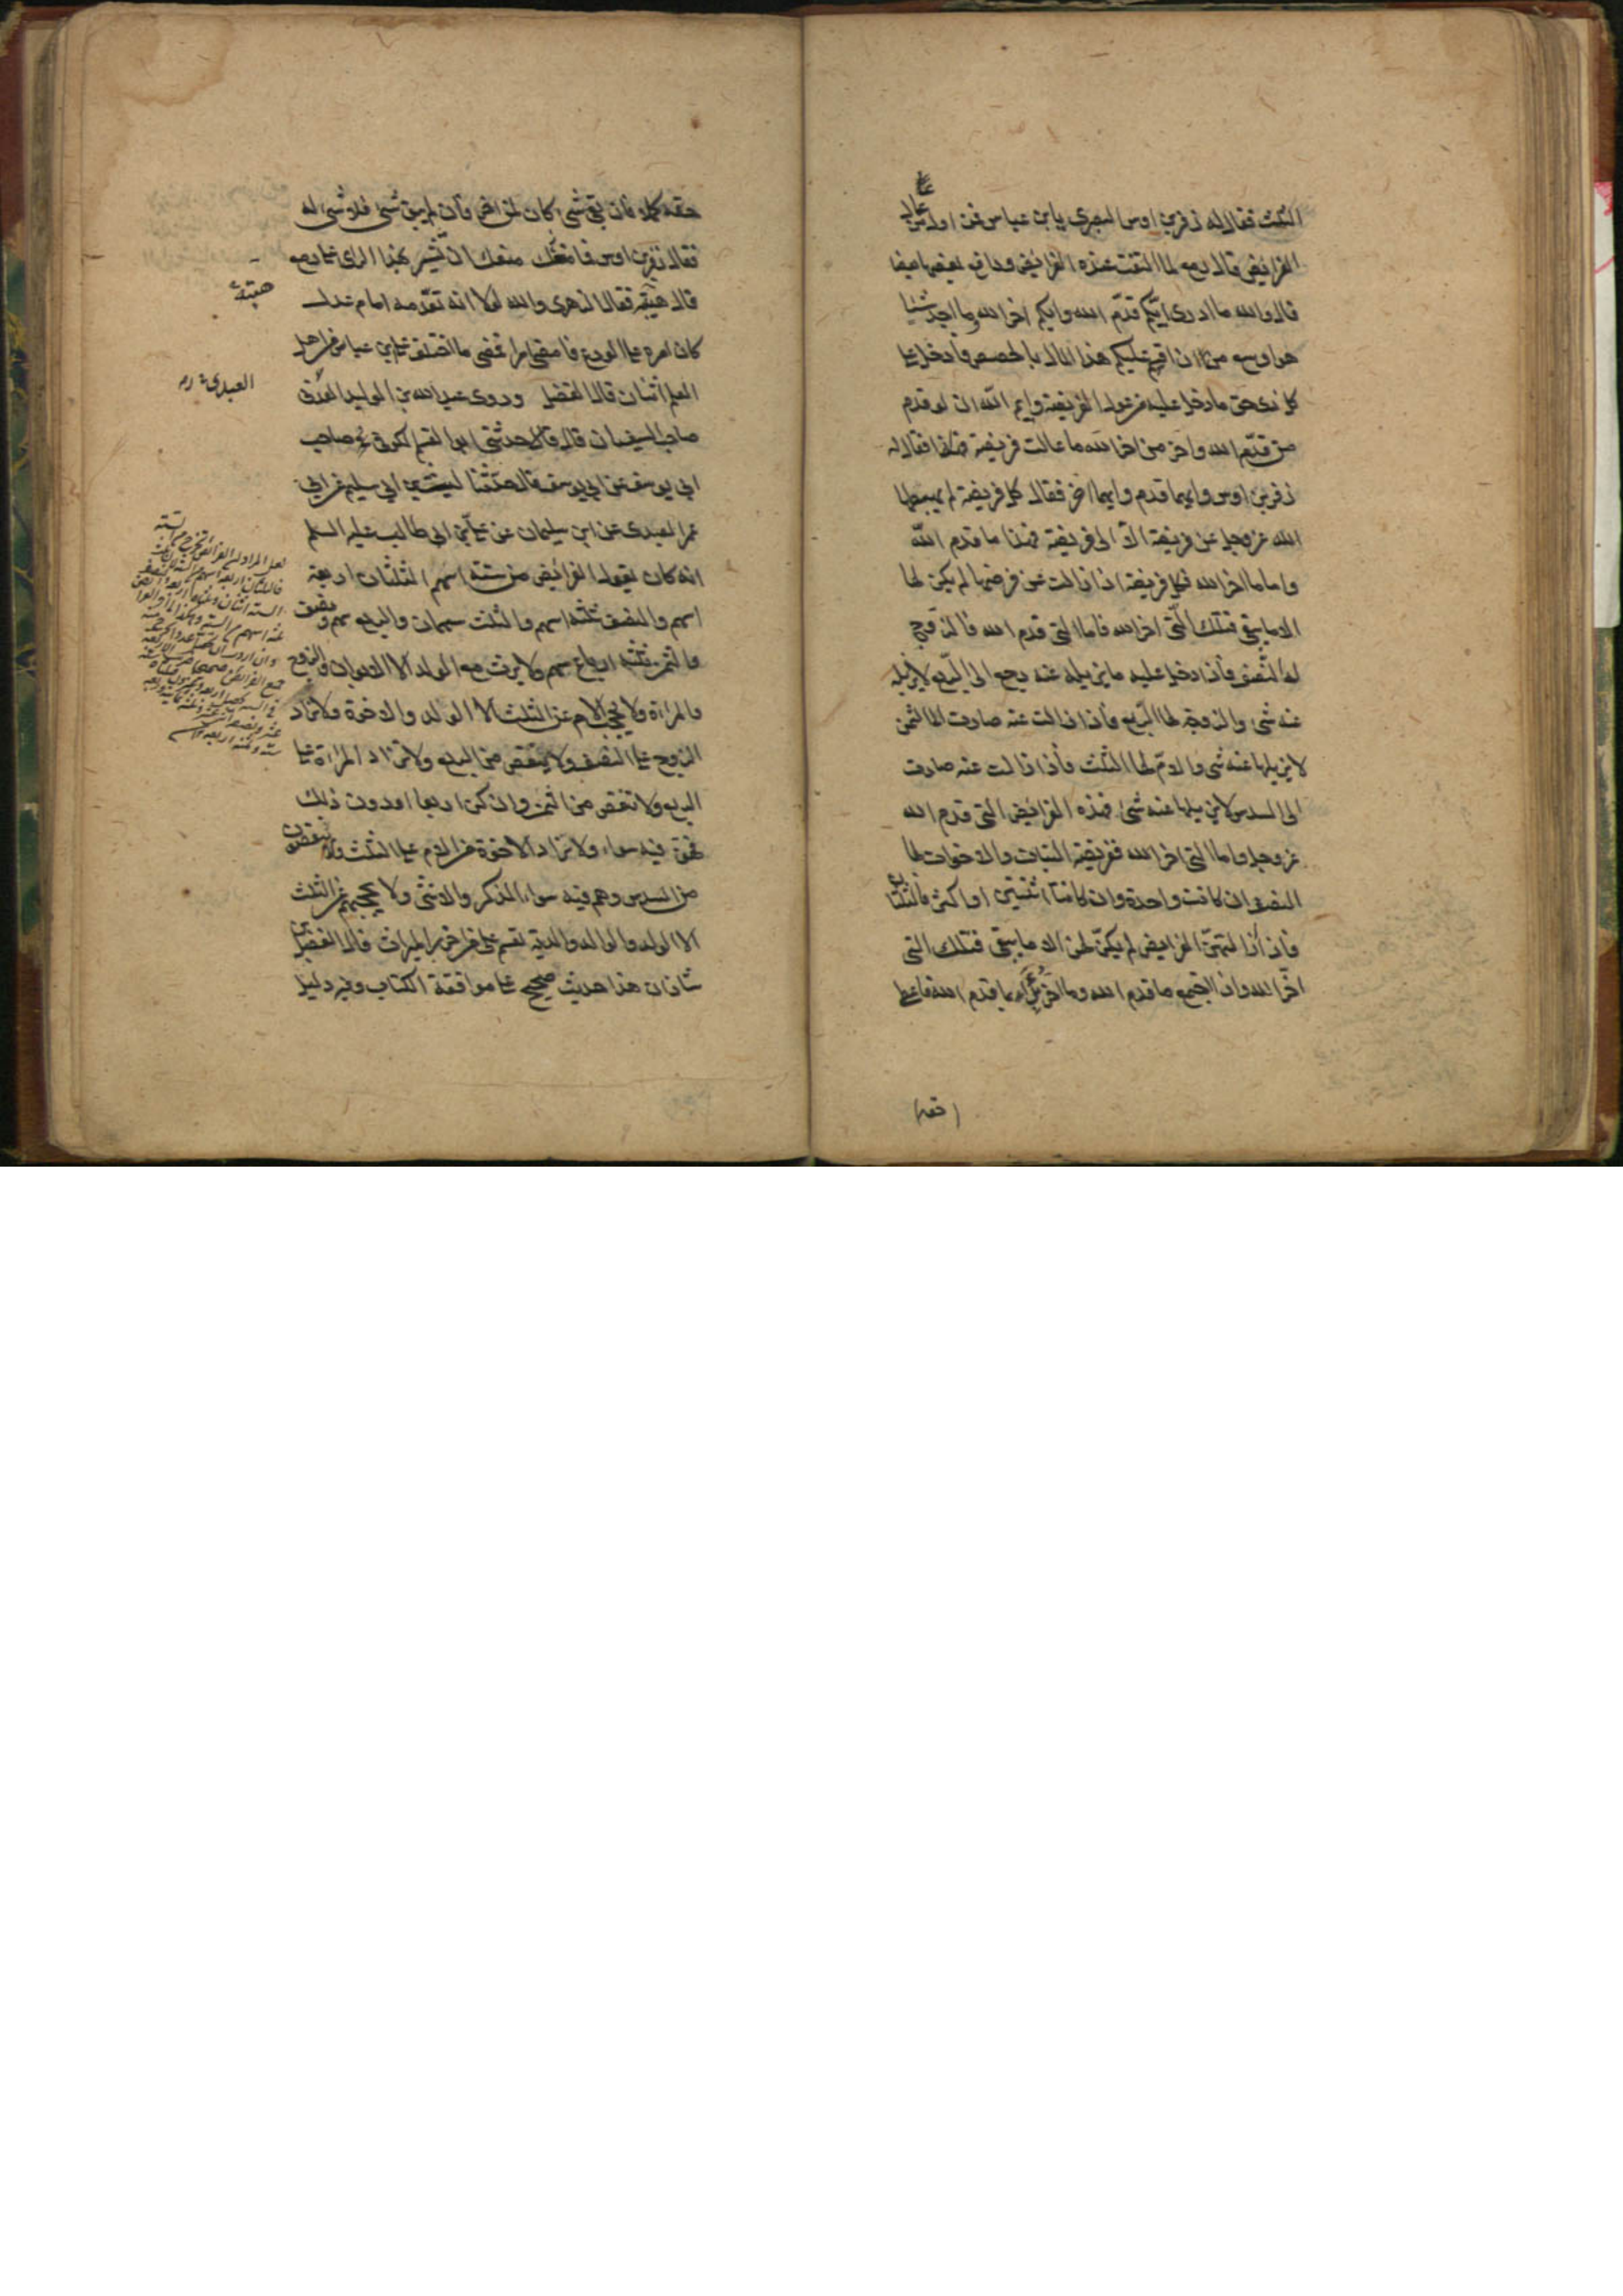 الثلث فقال له زفر بن اوس البصري يا بن عباس فمن اول من اعال
الفرايض قال رمع لما التقت عنده الفرايض ودافع بعضها بعضا
قال والله ما ادرى ايكم قدم الله وايكم اخر الله وما اجد شيئا
هو اوسع من ان اقسم عليكم هذا المال بالحصص فادخل على
كل ذى حق ما دخل عليه من عول الفريضة وايم الله ان لو قدم
من قدم الله واخر من اخر الله ما عالت فريضة فقال له
زفر بن اوس وايهما قدم وايهما اخر فقال كل فريضة لم يهبطها
الله عز وجل عن فريضة الا الى فريضة فهذا ما قدم الله
واما ما اخر الله فكل فريضة اذا زالت عن فرضها لم يكن لها
الا ما يبقى فتلك التى اخر الله فاما التى قدم الله فالزوج
له النصف فاذا دخل عليه ما يزيله عنه رجع الى الربع لا يزيله
عنه شى والزوجة لها الربع فاذا زالت عنه صارت الى الثمن
لا يزيلها عنه شى والام لها الثلث فاذا زالت عنه صارت
الى السدس لا يزيلها عنه شئ فهذه الفرايض التى قدم الله
عز وجل واما التى اخر الله ففريضة البنات والاخوات لها
النصف ان كانت واحدة وان كانتا اثنتين او اكثر فالثلثان
فاذا ازالتهن الفرايض لم يكن لهن الا ما يبقى فتلك التى
اخر الله واذا اجتمع ما قدم الله وما اخر بدأ بما قدم الله فاعطى
حقه
حقه كملا فان بقى شى كان لمن اخر فان لم يبق شى فلا شى له
فقال زفر بن اوس فما منعك ان تشير بهذا الراى على رمع
قال هيبته فقال الزهرى والله لولا انه تقدمه امام عدل
هيبته
كان امره على الورع فامضى امرا فمضى ما اختلف على ابن عباس من اهل
العلم اثنان قال الفضل وروى عبد الله بن الوليد العدنى
العبدى
صاحب سفيان قال حدثنى ابو القسم الكوفى صاحب
ابى يوسف عن ابى يوسف قال حدثنا ليث بن ابى سليم عن ابى
عمر العبدى عن ابن سليمان عن على بن ابى طالب عليه السلم
انه كان يقول الفرايض من ستة اسهم الثلثان اربعة
اسهم والنصف ثلثة اسهم والثلث سهمان والربع سهم ونصف
والثمن ثلثة ارباع سهم ولا يرث مع الولد الا الابوان والزوج
والمراة ولا يحجب الام عن الثلث الا الولد والاخوة ولا يزاد
الزوج على النصف ولا ينقص من الربع ولا تزاد المراة على
الربع ولا تنقص من الثمن وان كن اربعا او دون ذلك
فهن فيه سواء ولا تزاد الاخوة من الام على الثلث ولا ينقصون
من السدس وهم فيه سواء الذكر والانثى ولا يحجبهم عن الثلث
الا الولد والوالد والدية تقسم على من احرز الميراث قال الفضل بن
شاذان هذا حديث صحيح على موافقة الكتاب وفيه دليل